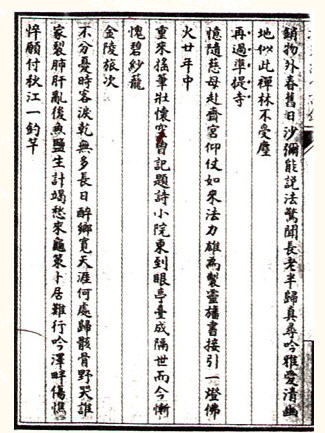 鎖物外春舊日沙彌能説法驚聞長老半歸真尋今雅愛清幽
地似此禪林不受塵
再過準提寺
憶隨慈母赴齋宮仰仗如來法力雄為製靈旛書接引一燈佛
火廿年中
重來搖筆壯懷空曾記題詩小院東到眼亭臺成隔世而今慚
愧碧紗籠
金陵旅次
不分憂時客淚乾無多長日醉鄉寬天涯何處歸骸骨野哭誰
家裂肺肝亂後魚鹽生計竭愁來龜策卜居難行吟澤畔傷憔
悴願付秋江一釣竿